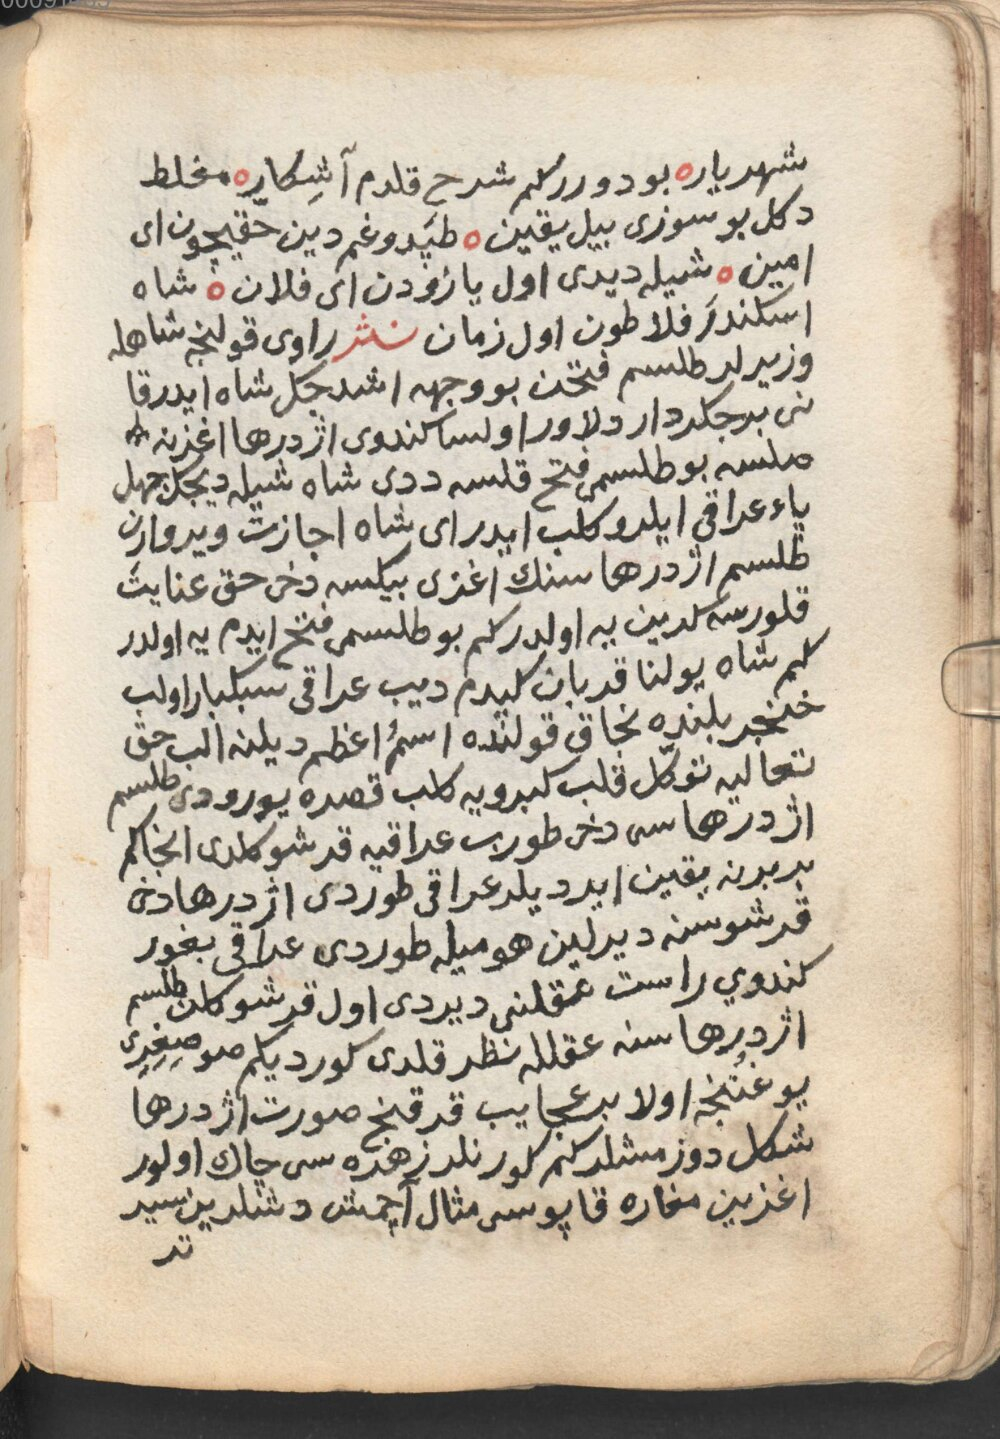 شهریاره بودوررکم شرح قلدم آشکاره مغلط
دکل بو سوزی بیل یقین ه طیدوغم دین حقیچون ای
امین ه شیله دیدی اول یازودن ای فلان ه شاه
اسکندر فلاطون اول زمان نثر راوی قولنجه شاهله
وزیرلر طلسم فتحن بو وجهه اشدجکل شاه ایدر قا
نی بر جکردار دلاور اولسا کندوی اژدرها اغزنه
صلسه بو طلسمی فتح قلسه ددی شاه شیله دیجکل جهل
یاء عراقی ایلرو کلب ایدر ای شاه اجازت ویر وارن
طلسم اژدرهاسنك اغزی بیکسه دخی حق عنایت
قلورسه کدین یه اولدرکم بو طلسمی فتح ایدم یه اولدر
کم شاه یولنا قربان کیدم دیب عراقی سبکبار اولب
خنجر بلنده نخاق قولنده اسم اعظم دیلنه الب حق
تعالیه توکّل قلب کبرویه کلب قصده یورودی طلسم
اژدرهاسی دخی طورب عراقیه قرشو کلدی انجاکم
بربرنه یقین ایردیلر عراقی طوردی اژدرها دخی
قرشوسنه دیرلین هومیله طوردی عراقی بغور
کندوی راست عقلنی دیردی اول قرشو کلن طلسم
اژدرهاسنه عقلله نظر قلدی کوردیکم صوصغری
یوغنجه اولا بر عجایب قرقنج صورت اژدرها
شکل دوزمشلرکم کورنلر زهره سی چاك اولور
اغزین مغاره قاپوسی مثال آچمش دشلرین سیر
تر